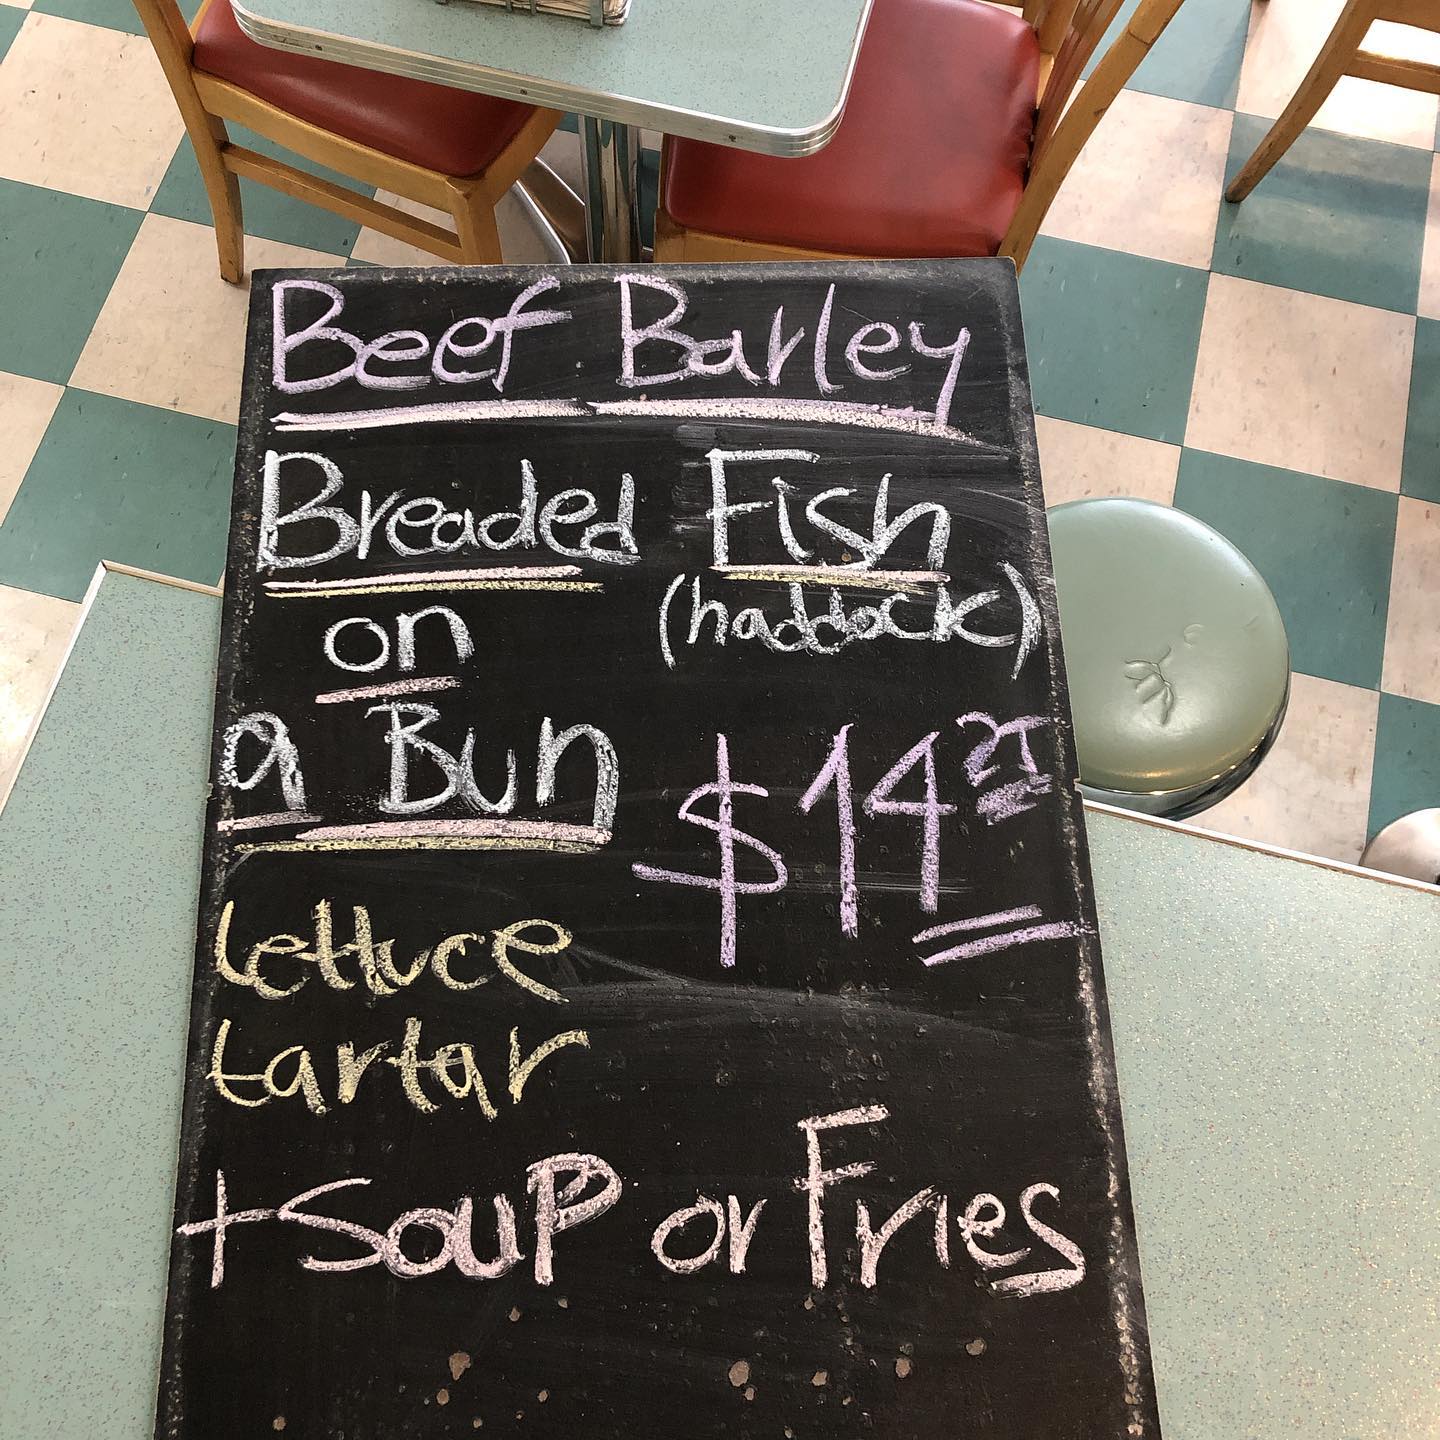 Beef Barley
Breaded Fish
(haddock)
on
a Bun
$14.25
lettuce
tartar
+ Soup or Fries